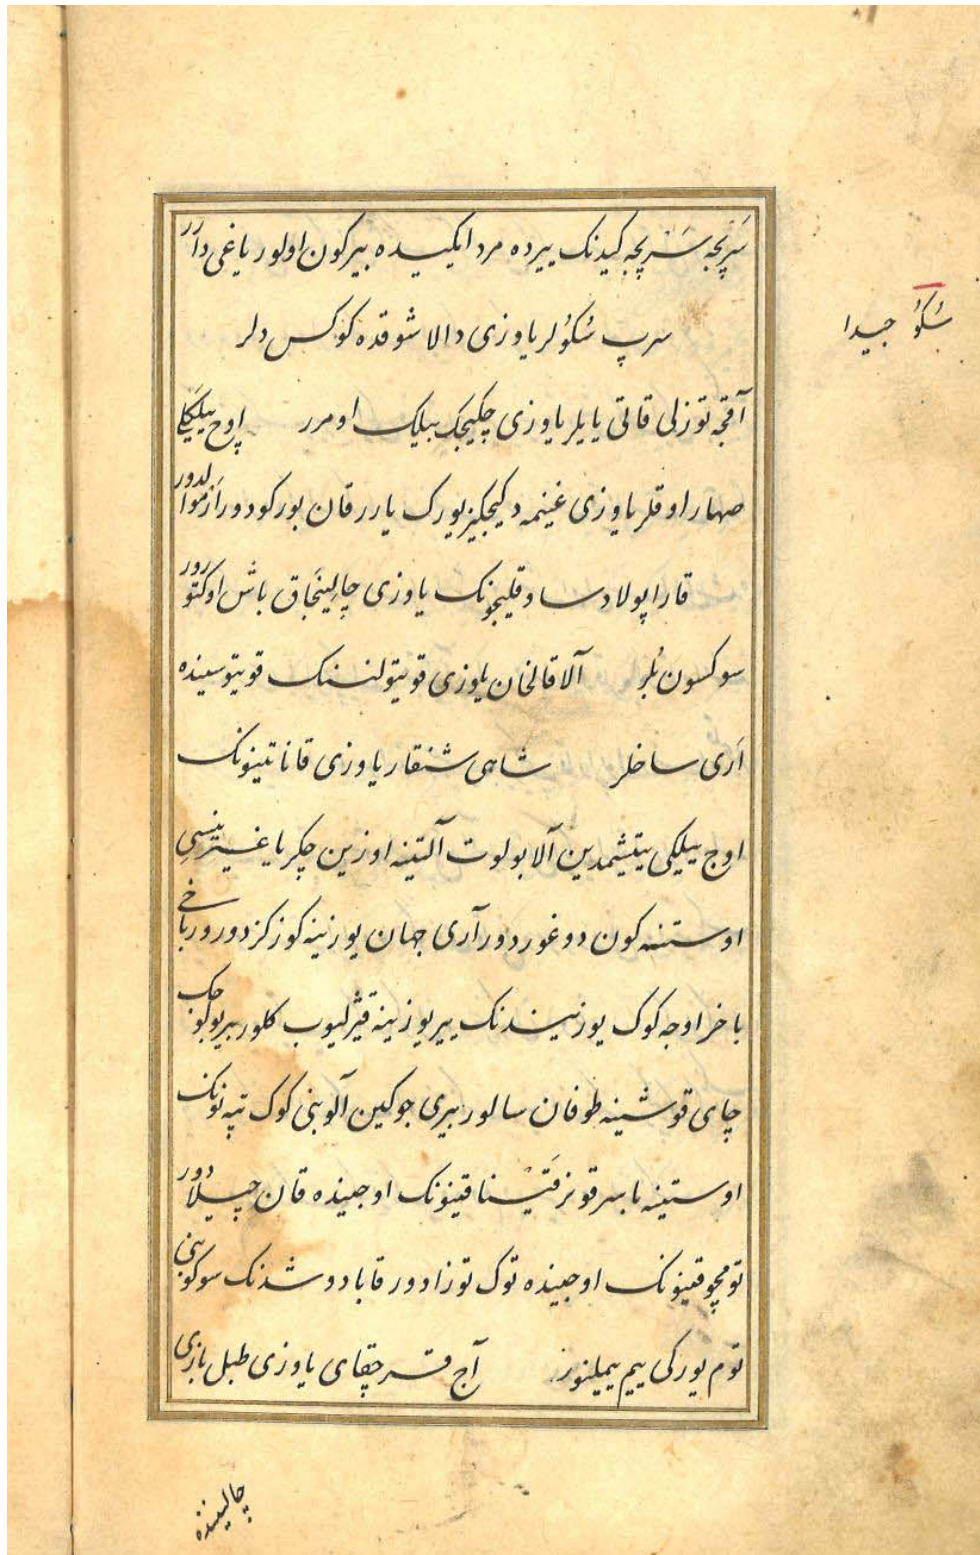 سَرپَچه سَرپَچه کیدنک ییرده مرد ایکیده بیرکون اولور یاغی دارر
سُکوُ جیدا
سرپ سُکوُلر یاوزی دالاشوقده کوکس دلر
آقچه توزلی قاتی یایلر یاوزی چکیجک بیلک اومرر اوچ ییلیکلی
صهار اوقلر یاوزی غینمه دکیجکیز یورک یارر قان بورکودور آزموالدور
قارا پولاد ساو قلیچونک یاوزی چالینجاق باش اوکتورور
سوکسون بُلر آلا قالخان یاوزی قویتولننک قویتوسینده
اَری ساخلر شاهی شنقار یاوزی قاناتینونک
اوچ ییلکی یتیشمدین آلا بولوت آلتینه اوزین چکر یاغیرینسی
اوستنه کون دوغوردور آری جهان یوزینه کوز کزدورور باخی
باخر اوجه کوک یوزنیندنک ییر یوزینه قیژلیوب کلور بیویوکوجک
چای قوشینه طوفان سالور بیری جوکین آلوبنی کوک تپه نونک
اوستینه باسر قونر قَتیناقینونک اوجینده قان چیلادور
تومچوقینونک اوجینده توک توزادور قابا دوشدنک سوکوبنی
توم یورکی ییم ییملنور آج قرچقای یاوزی طبل بازی
چالیننده